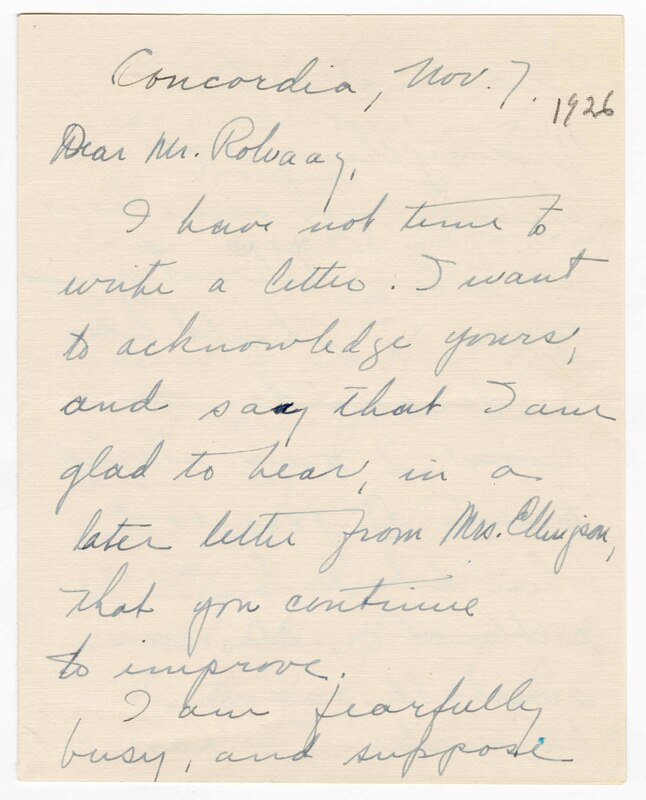 Concordia, Nov. 7.
1926
Dear Mr. Rolvaag,
I have not time to
write a letter. I want
to acknowledge yours,
and say that I am
glad to hear, in a
later letter from Mrs. Ellingson,
that you continue
to improve.
I am fearfully
busy, and suppose